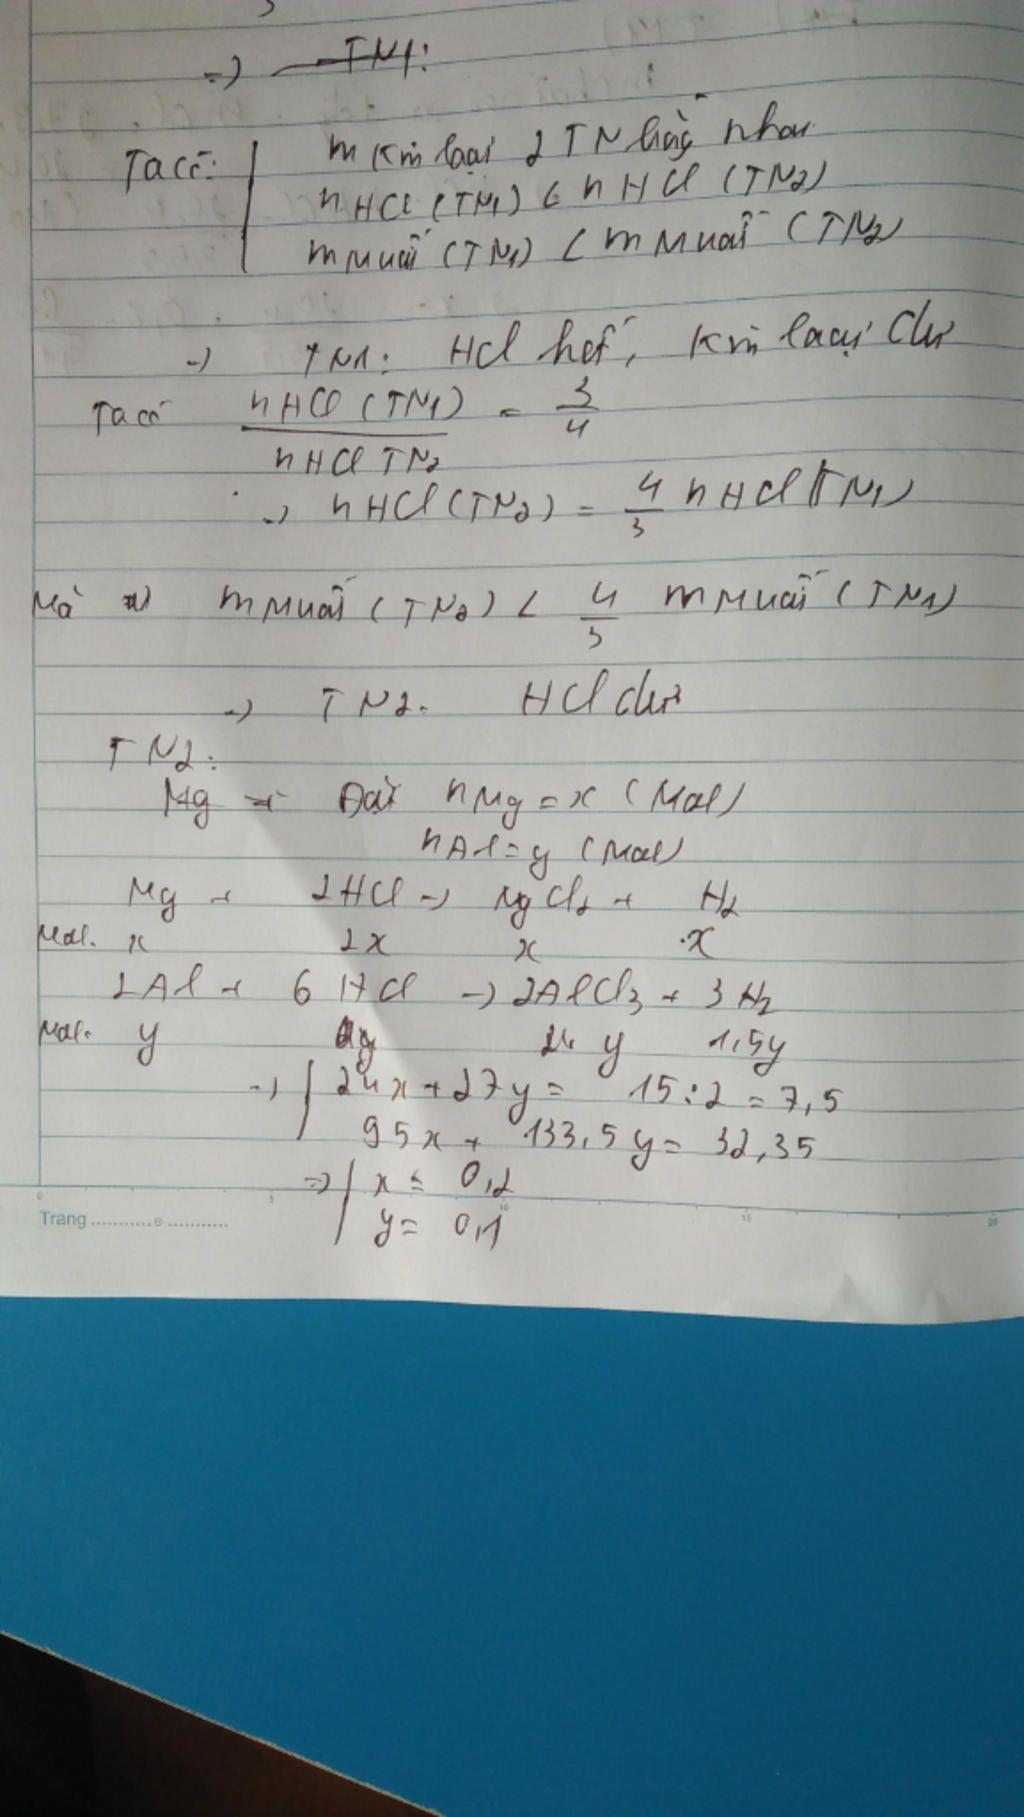 =) TN1:
Ta có: m Km loại 2 TN bằng nhau
nHCl (TN1) < nHCl (TN2)
m Muối (TN1) < m Muối (TN2)
-) TN1: HCl hết, Km loại dư
Ta có nHCl (TN1) / nHCl TN2 = 3/4
-) nHCl (TN2) = 4/3 nHCl (TN1)
Mà m Muối (TN2) < 4/3 m Muối (TN1)
-) TN2. HCl dư
TN2:
Mg + Đặt nMg = x (Mol)
nAl = y (Mol)
Mg + 2HCl -) MgCl2 + H2
Mol. x 2x x x
2Al + 6 HCl -) 2AlCl3 + 3 H2
Mol. y y 1,5y
-) 24x + 27y = 15:2 = 7,5
95x + 133,5y = 32,35
=) x = 0,2
y = 0,1
0 5 10 15 20
Trang